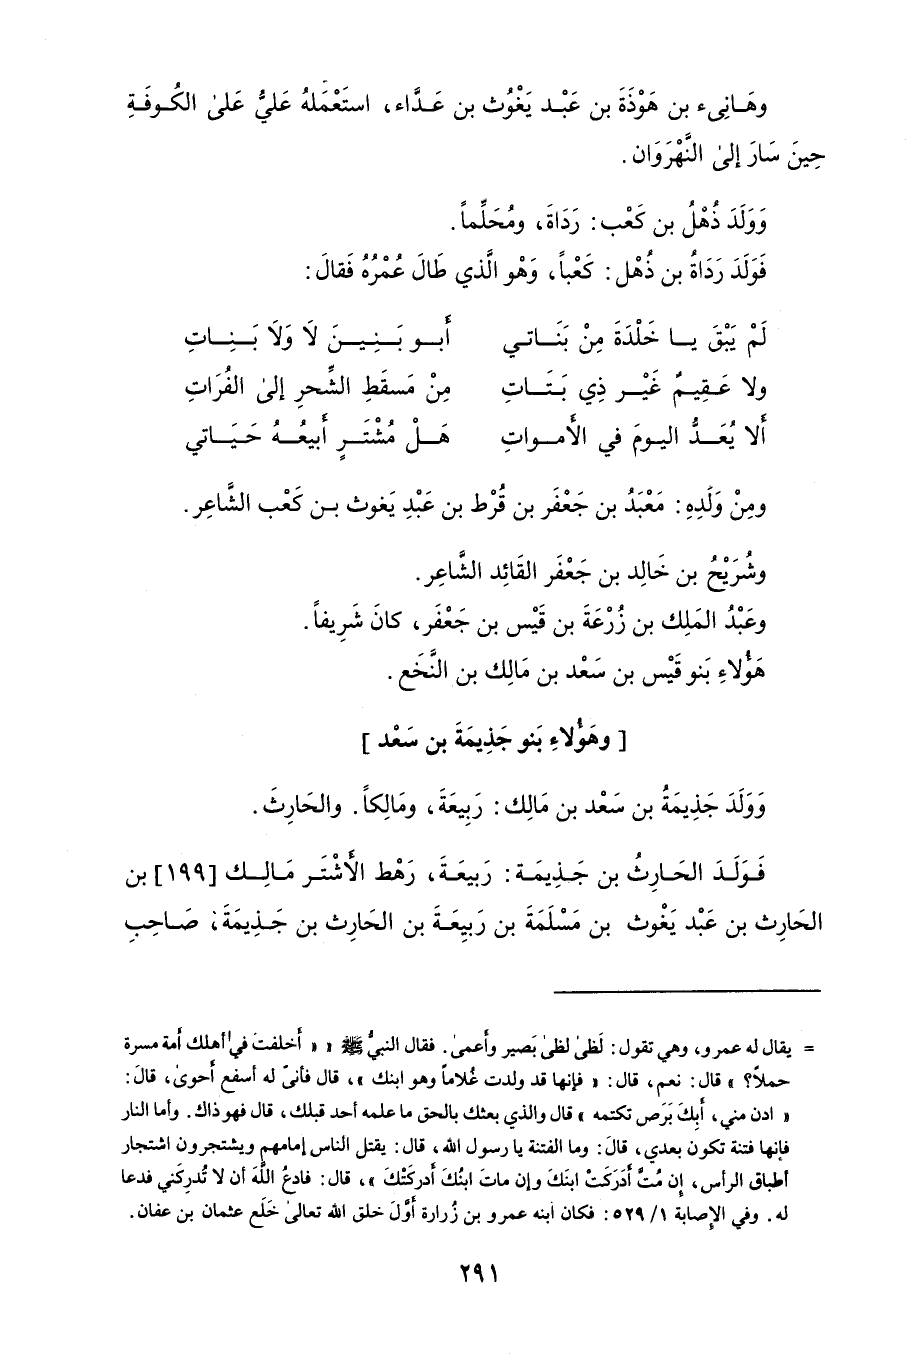 وهَـانِىء بن هَوْذَةَ بن عَبْـد يَغْوُث بن عَـدَّاء، استَعْمَلهُ عَليٌّ عَلىٰ الكُـوفَـةِ
حِينَ سَارَ إلىٰ النَّهْرَوَان.
وَوَلَدَ ذُهْلُ بن كَعْب: رَدَاةَ، ومُحَلِّماً.
فَوَلَدَ رَدَاةُ بن ذُهْل: كَعْباً، وَهْو الَّذي طَالَ عُمْرُهُ فَقالَ:
لَمْ يَبْقَ يـا خَلْدَةَ مِنْ بَنَـاتـي أَبـو بَـنِـيـنَ لَا وَلَا بَـنِـاتِ
ولا عَـقِيـمٌ غَيْـر ذِي بَـتَـاتِ مِنْ مَسقَطِ الشِّحرِ إلىٰ الفُرَاتِ
أَلا يُعَـدُّ اليـومَ في الأمـواتِ هَـلْ مُشْتَـرٍ أَبيعُـهُ حَـيَـاتي
ومِنْ وَلَدِهِ: مَعْبَدُ بن جَعْفَر بن قُرْط بن عَبْدِ يَغوث بـن كَعْب الشَّاعِر.
وشُرَيْحُ بن خَالِد بن جَعْفَر القَائِد الشَّاعِر.
وعَبْدُ المَلِك بن زُرْعَةَ بن قَيْس بن جَعْفَر، كانَ شَرِيفاً.
هَؤُلاءِ بَنو قَيْس بن سَعْد بن مَالِك بن النَّخَع.
[ وهَؤُلاءِ بَنو جَذِيمَةَ بن سَعْد ]
وَوَلَدَ جَذِيمَةُ بن سَعْد بن مَالِك: رَبِيعَةَ، ومَالِكاً. والحَارِثَ.
فَـوَلَـدَ الحَـارِثُ بن جَـذِيمَـة: رَبيعَـةَ، رَهْط الأَشْتَـر مَـالِـك [١٩٩] بن
الحَارِث بن عَبْد يَغْوث بن مَسْلَمَة بن رَبِيعَـةَ بن الحَارِث بن جَـذِيمَةَ؛ صَـاحِبِ
= يقال له عمرو، وهي تقول: لَظىٰ لظىٰ بَصير وأَعمىٰ. فقال النبيُّ ﷺ « « أَخلفتَ في أهلك أمة مسرة
حملاً؟ » قال: نعم، قال: « فإنها قد ولدت غُلاماً وهو ابنك »، قال فأنىّ له أسفع أَحوىٰ، قالَ:
« ادن مني، أَبِكَ بَرَص تكتمه » قال والذي بعثك بالحق ما علمه أحد قبلك، قال فهو ذاك. وأما النار
فإنها فتنة تكون بعدي، قالَ: وما الفتنة يا رسول الله، قال: يقتل الناس إمامهم ويشتجرون اشتجار
أطباق الرأس، إِن مُتَّ أَدرَكَتْ ابنَكَ وإن ماتَ ابنُكَ أَدركَتْكَ »، قال: فادعُ اللَّهَ أن لا تُدرِكَني فدعا
له. وفي الإصابة ١/ ٥٢٩: فكان ابنه عمرو بن زُرارة أَوَّلَ خلق الله تعالىٰ خَلَع عثمان بن عفان.
٢٩١